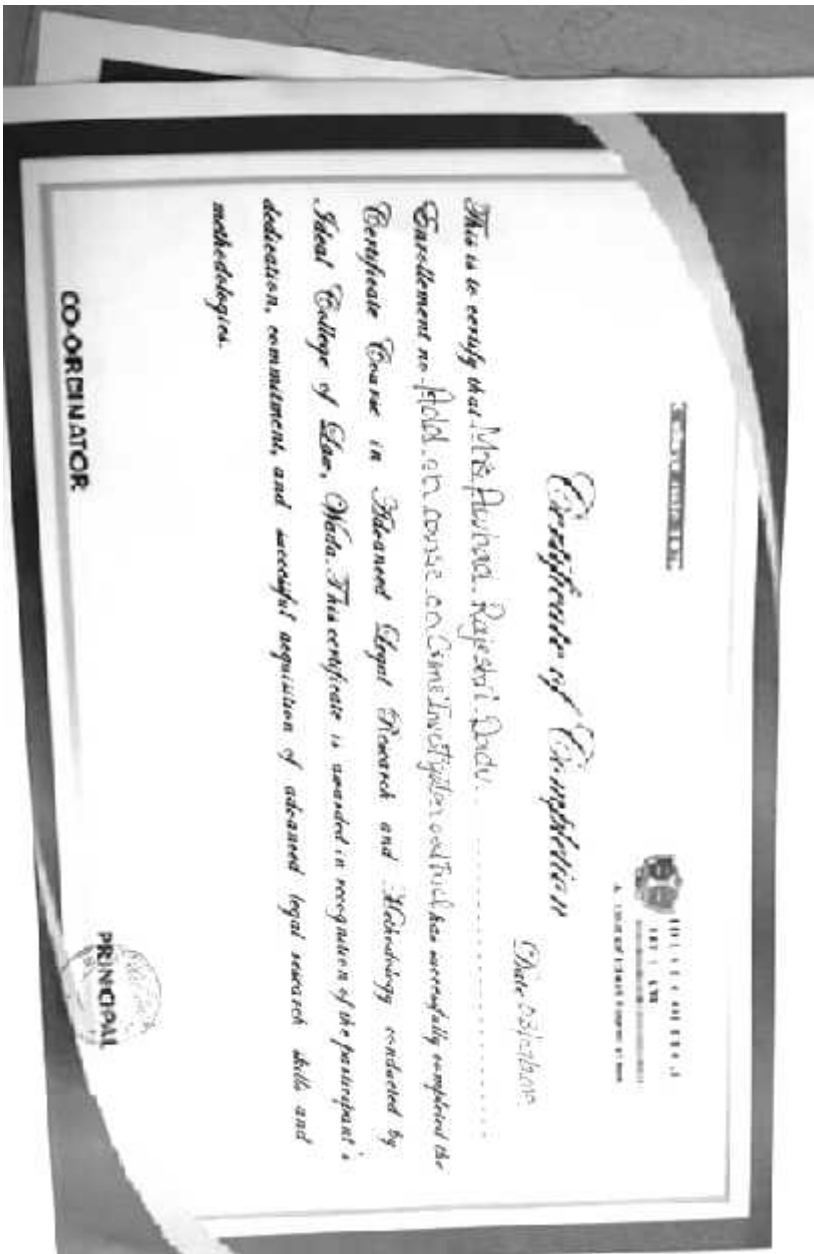 Certificate of Completion
Date 03/
This is to certify that Mrs Rajeshri Dadu
Enrollement no. Add on course on Crime Investigation and Trial has successfully completed the
Certificate Course in Advanced Legal Research and Methodology conducted by
Ideal College of Law, Wada. This certificate is awarded in recognition of the participant's
dedication, commitment, and successful acquisition of advanced legal research skills and
methodologies.
CO-ORDINATOR
PRINCIPAL